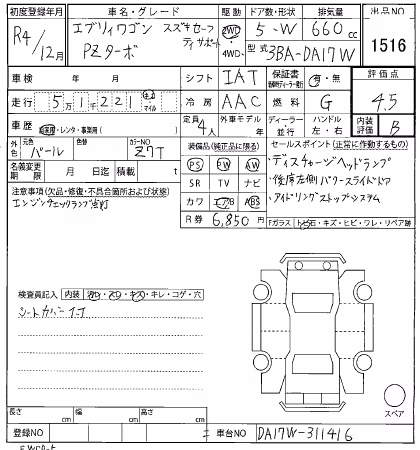 初度登録年月 車名・グレード 駆動 ドア数・形状 排気量 出品NO
R4/12月 エブリィワゴン スズキセーフティサポート 2WD 5-W 660cc 1516
PZターボ 4WD 型式 3BA-DA17W
車検 年 月 シフト IAT 保証書 有・無 評価点
走行 5万1千221 冷房 AAC 燃料 G 4.5
車歴 自家用・レンタ・事業用( ) 定員 4人 外車モデル 年 ディーラー 並行 ハンドル 左・右 内装評価 B
外色 元色 パール 色替 カラーNO Z7T 装備品(純正品に限る) セールスポイント(正常に作動するもの)
名義変更期限 月 日迄 積載 t PS PW AW ・ディスチャージヘッドランプ
注意事項(欠品・修復・不具合箇所および状態) SR TV ナビ ・後席左側パワースライドドア
エンジンチェックランプ点灯 カワ エアB ABS ・アイドリングストップシステム
R券 6,850円 Fガラス トビ石・キズ・ヒビ・ワレ・リペア跡
検査員記入 内装 ヨゴレ・スレ・キズ・キレ・コゲ・穴
シートカバー
スペア
長さ cm 幅 cm 高さ cm
登録NO 車台NO DA17W-311416